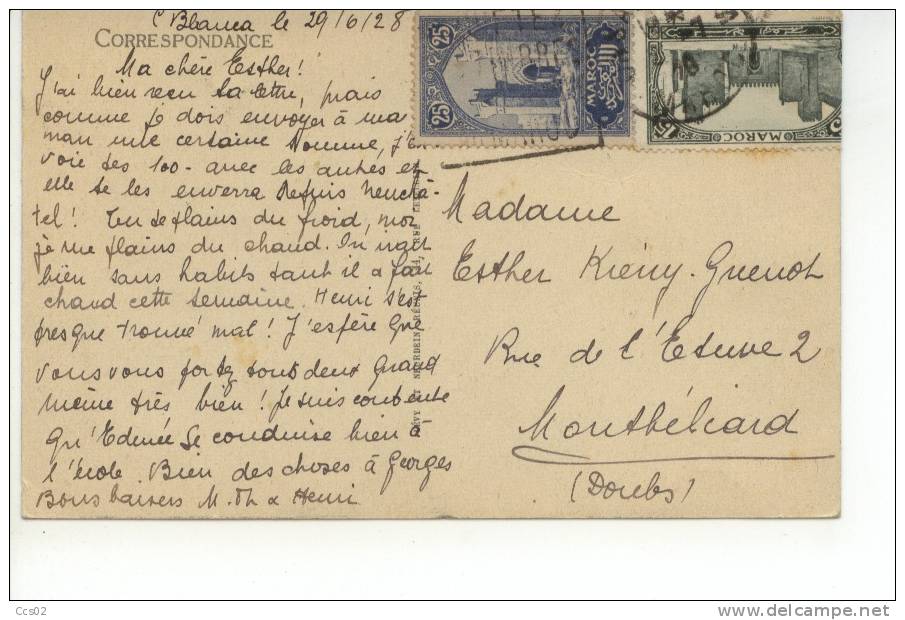 C Blanca le 29/6/28
CORRESPONDANCE
Ma chère Esther!
J'ai bien reçu ta lettre, mais
comme je dois envoyer à ma-
man une certaine somme, j'en-
voie tes 100.- avec les autres et
elle te les enverra depuis Neuchâ-
tel! Tu te plains du froid, moi
je me plains du chaud. On irait
bien sans habits tant il a fait
chaud cette semaine. Henri s'est
presque trouvé mal! J'espère que
vous vous portez tous deux quand
même très bien! Je suis contente
qu'Edmée se conduise bien à
l'école. Bien des choses à Georges
Bons baisers M. Th & Henri
LÉVY ET NEURDEIN RÉUNIS, 44, RUE LETELLIER
25 MAROC 25
15 MAROC
Madame
Esther Kiény-Guenot
Rue de l'Etuve 2
Montbéliard
(Doubs)
Ccs02
delcampe.net